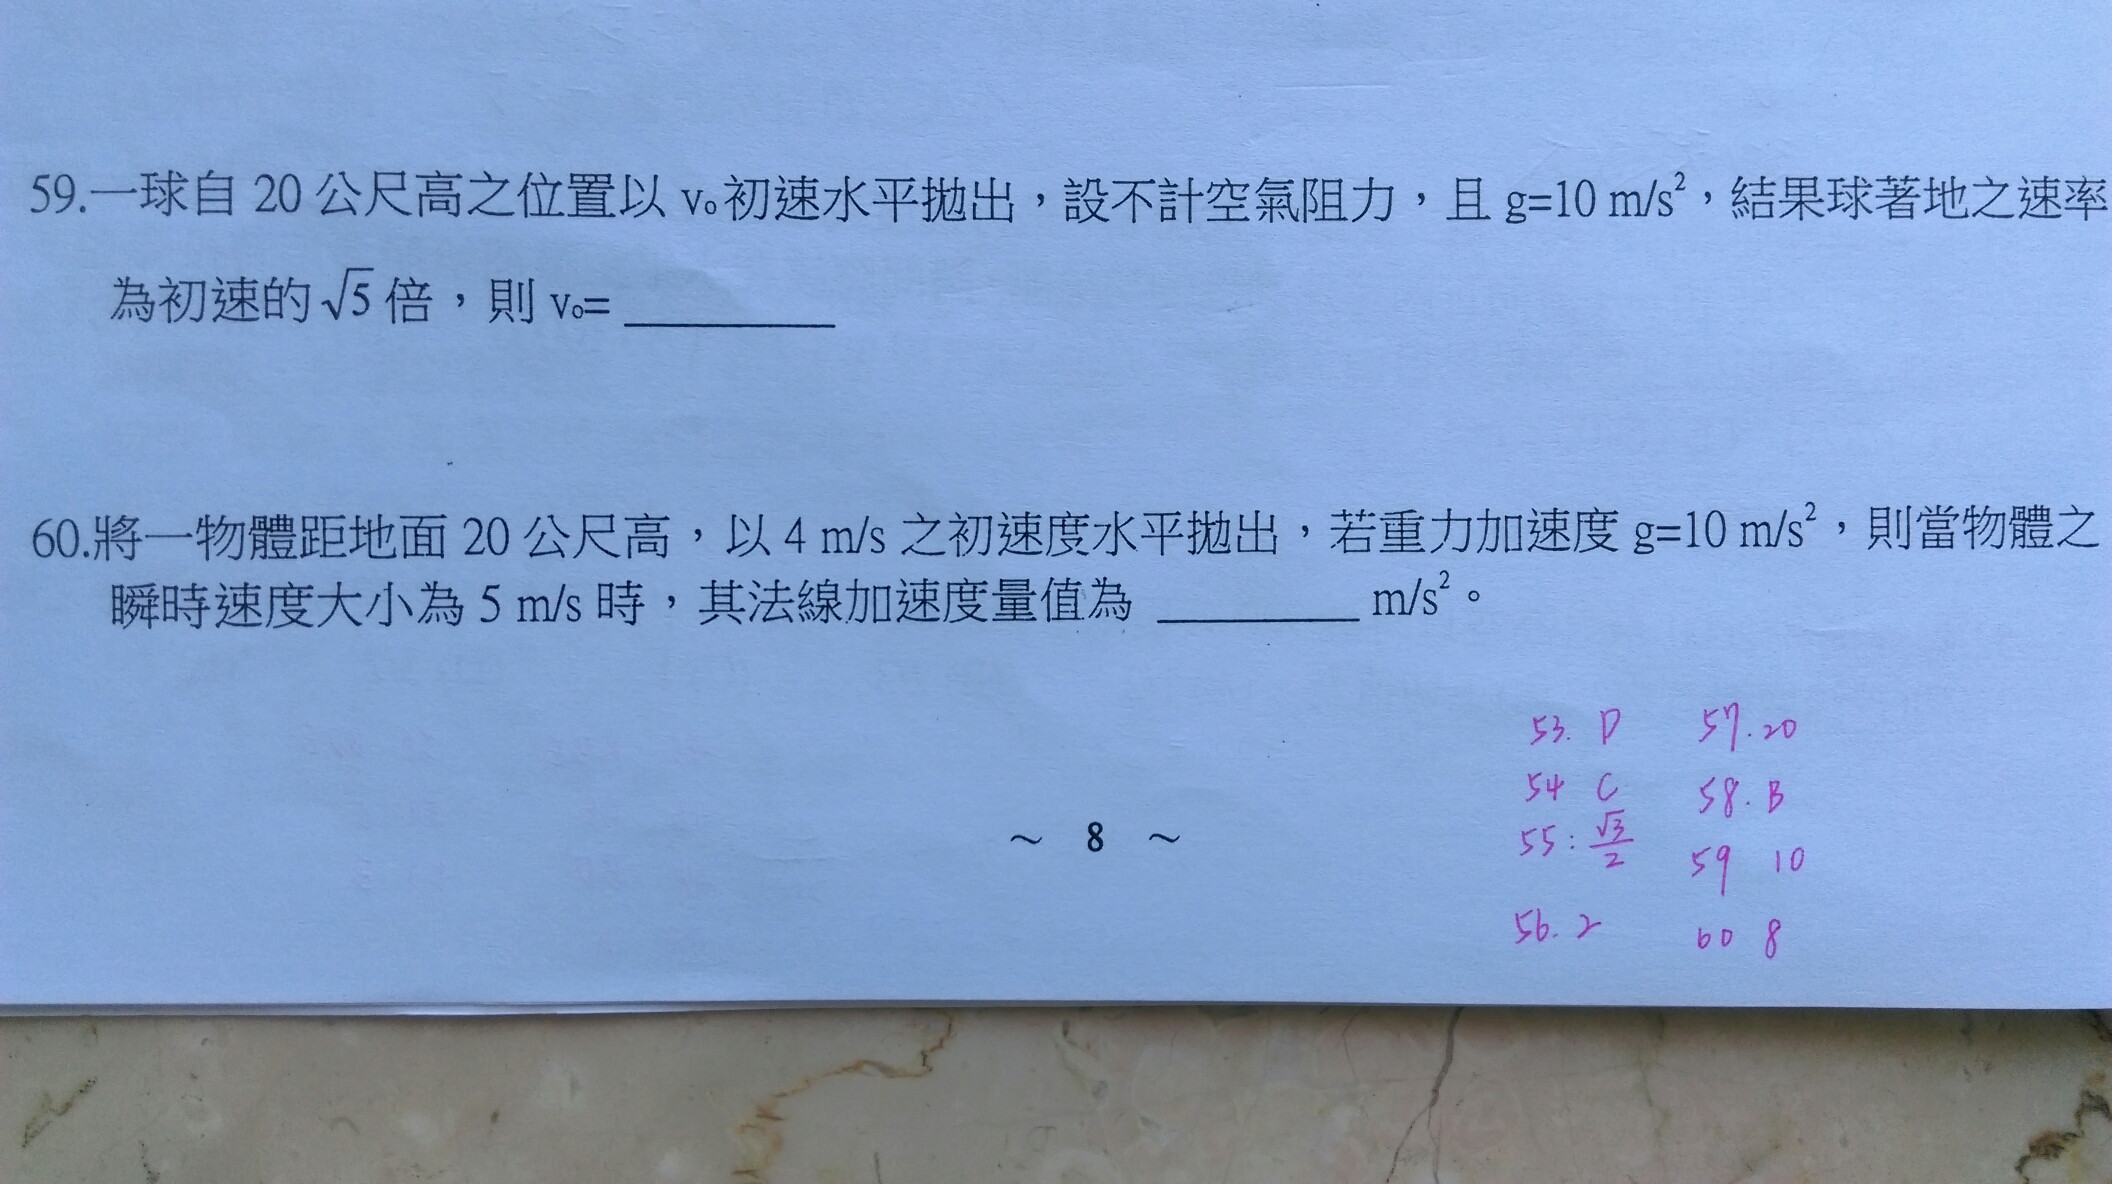 59.一球自 20 公尺高之位置以 v₀初速水平拋出，設不計空氣阻力，且 g=10 m/s²，結果球著地之速率
為初速的√5 倍，則 v₀= ________
60.將一物體距地面 20 公尺高，以 4 m/s 之初速度水平拋出，若重力加速度 g=10 m/s²，則當物體之
瞬時速度大小為 5 m/s 時，其法線加速度量值為 ________ m/s²。
53. D 57. 20
54 C 58. B
55: √3/2 59 10
56. 2 60 8
~ 8 ~